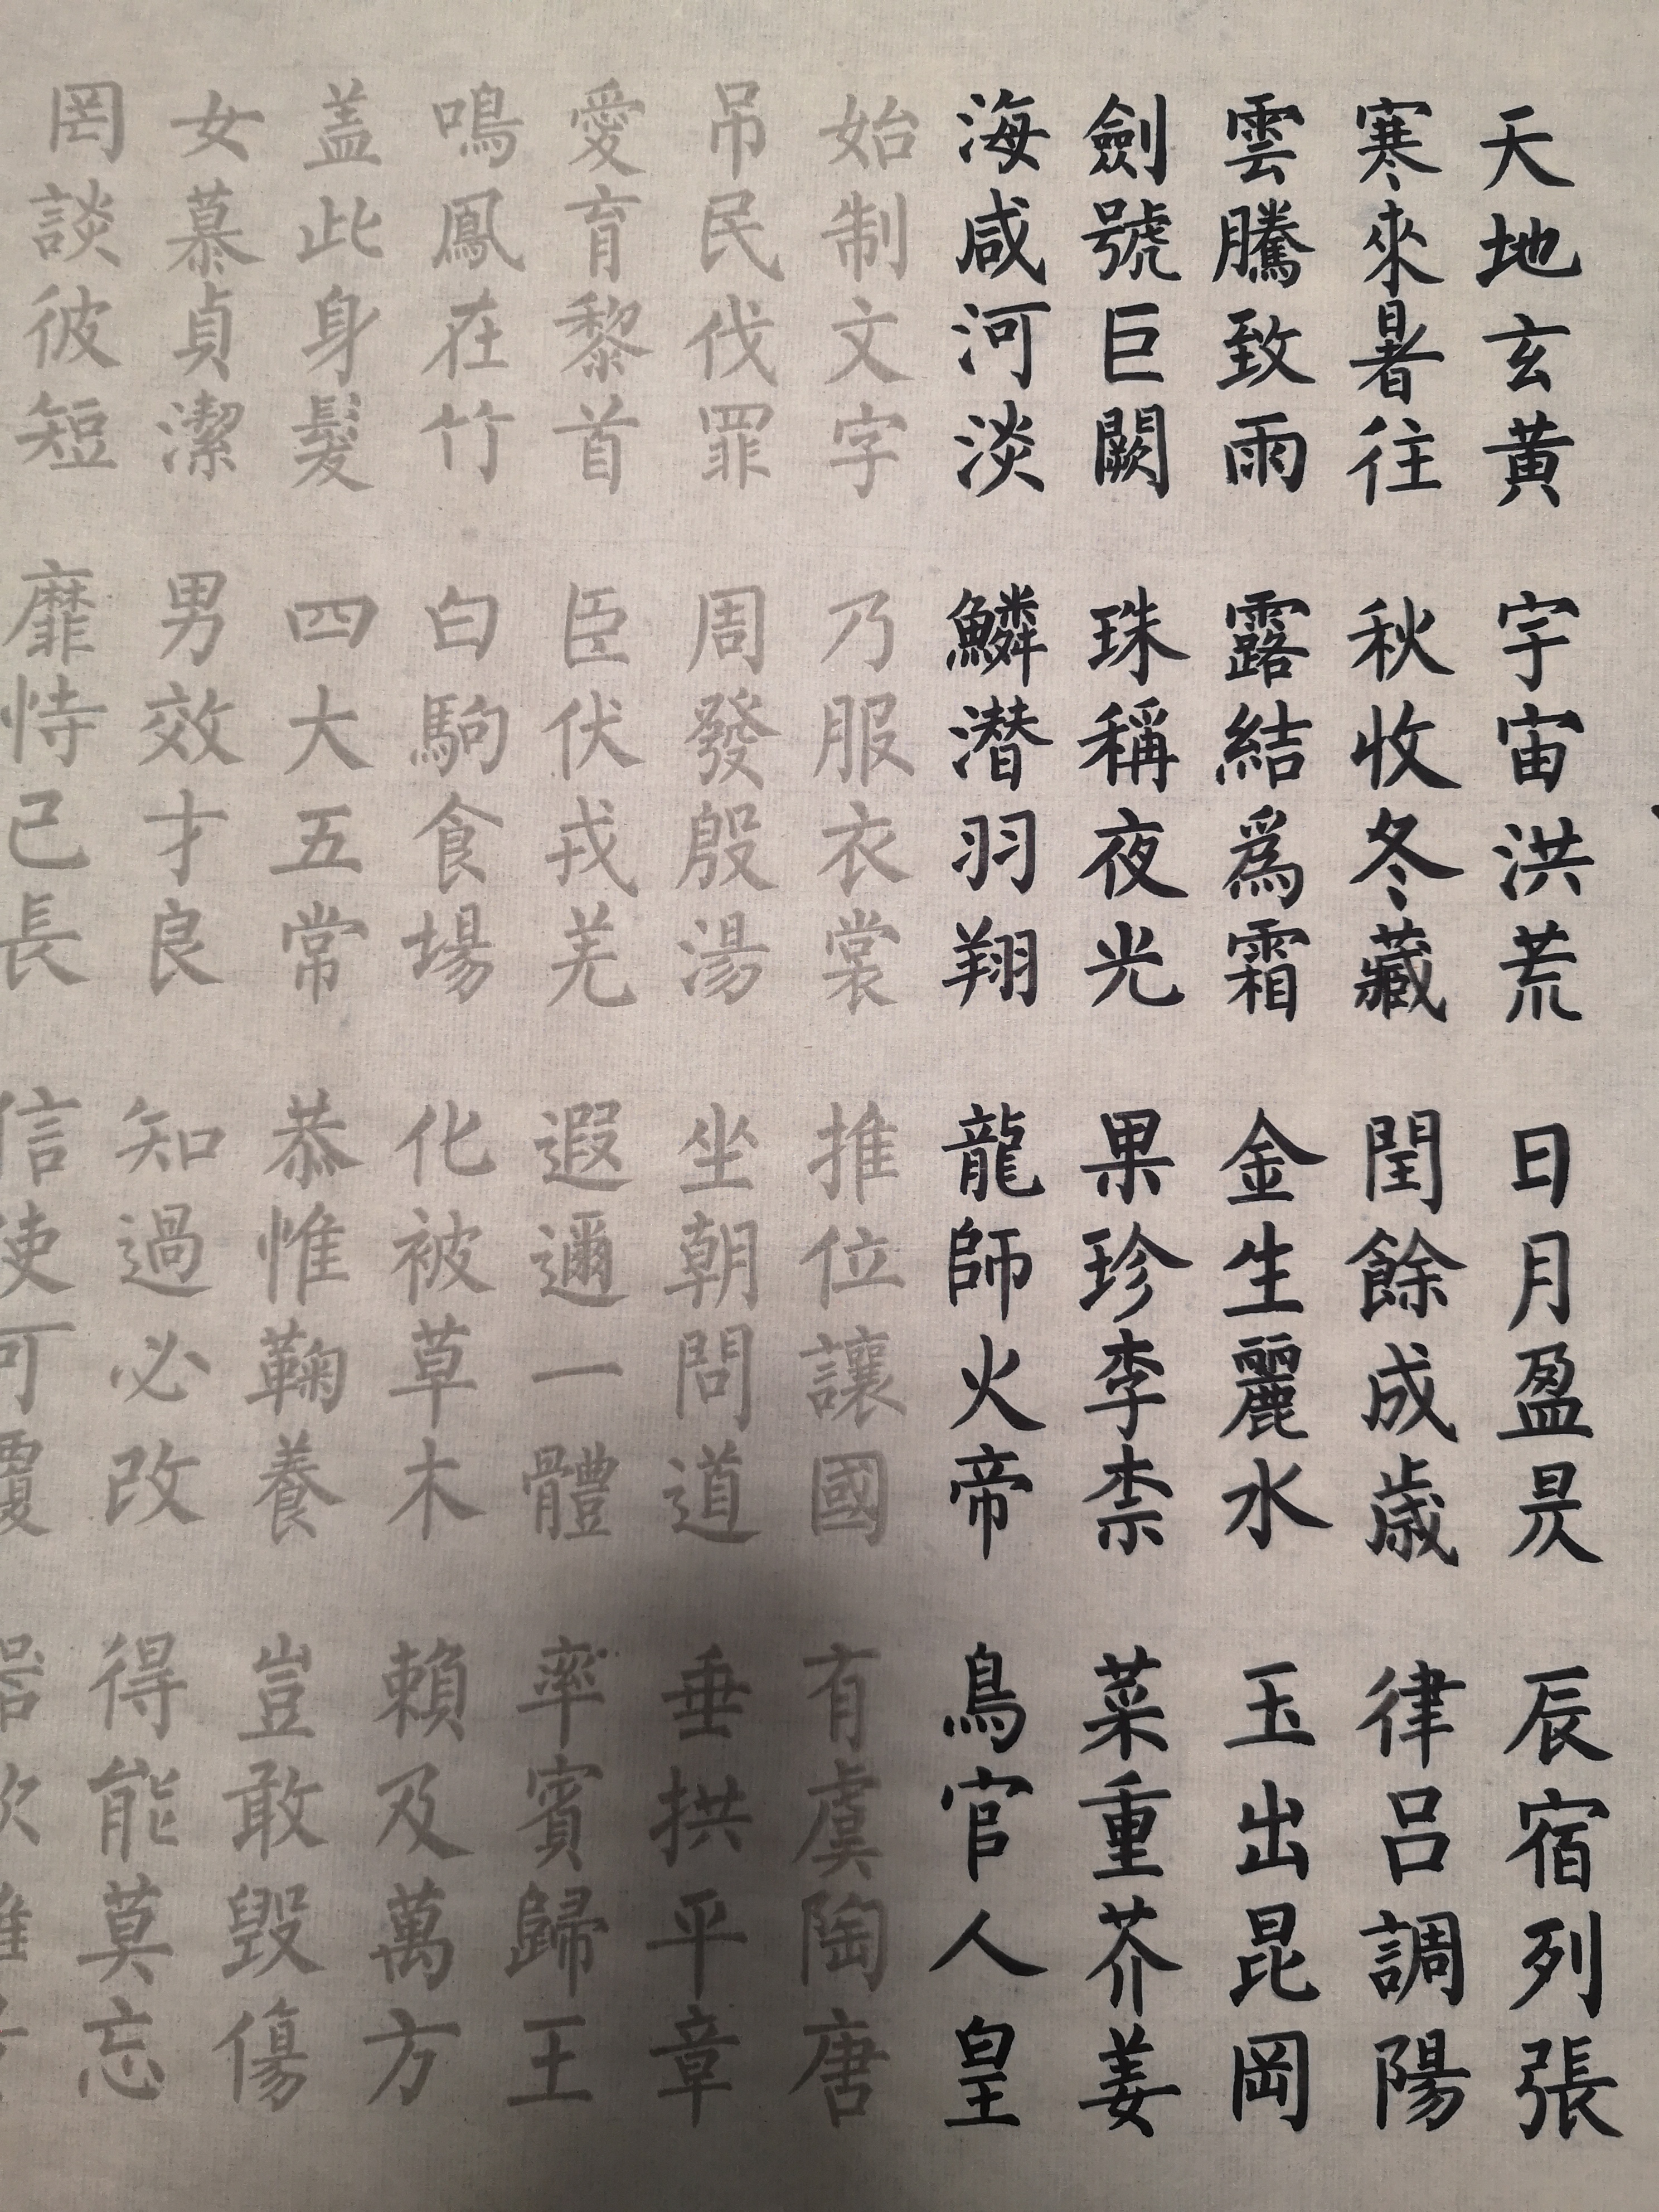 天地玄黄 宇宙洪荒 日月盈昃 辰宿列張
寒來暑往 秋收冬藏 閏餘成歳 律呂調陽
雲騰致雨 露結爲霜 金生麗水 玉出昆岡
劍號巨闕 珠稱夜光 果珍李柰 菜重芥姜
海咸河淡 鱗潜羽翔 龍師火帝 鳥官人皇
始制文字 乃服衣裳 推位讓國 有虞陶唐
吊民伐罪 周發殷湯 坐朝問道 垂拱平章
愛育黎首 臣伏戎羌 遐邇一體 率賓歸王
鳴鳳在竹 白駒食場 化被草木 賴及萬方
盖此身髮 四大五常 恭惟鞠養 豈敢毀傷
女慕貞潔 男效才良 知過必改 得能莫忘
罔談彼短 靡恃己長 信使可覆